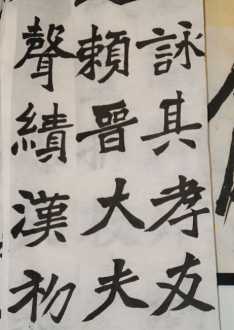 詠其孝友
賴晉大夫
聲績漢初